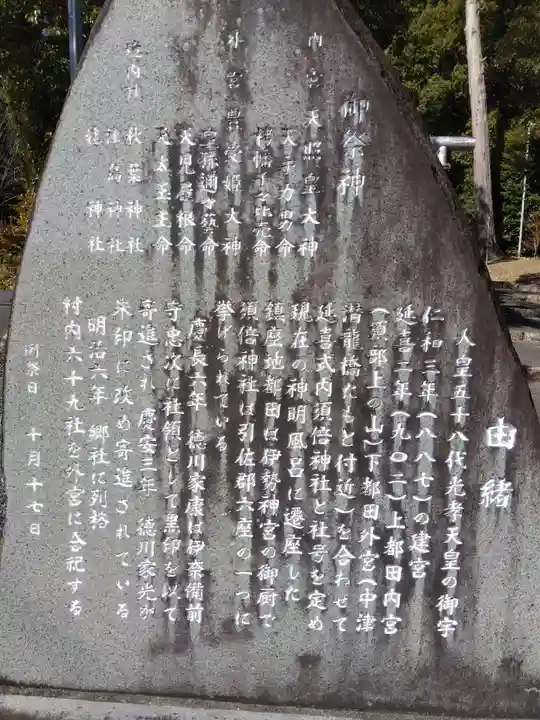 由緒
人皇五十八代光孝天皇の御宇
仁和三年(八八七)の建宮
延喜二年(九〇二)上都田内宮
(須部上の山)下都田外宮(中津
潜龍橋たもと付近)を合わせて
延喜式内須倍神社と社号を定め
現在の神明風呂に遷座した
鎮座地都田は伊勢神宮の御厨で
須倍神社は引佐郡六座の一つに
挙げられている
慶長六年 徳川家康は伊奈備前
守忠次に社領として黒印を以て
寄進され 慶安三年 徳川家光が
朱印に改め寄進されている
明治六年 郷社に列格
村内六十九社を外宮に合祀する
例祭日 十月十七日
御祭神
内宮 天照皇大神
天手力男命
千々比売命
外宮 豊受姫大神
天児屋根命
太玉命
境内社 秋葉神社
津島神社
神社